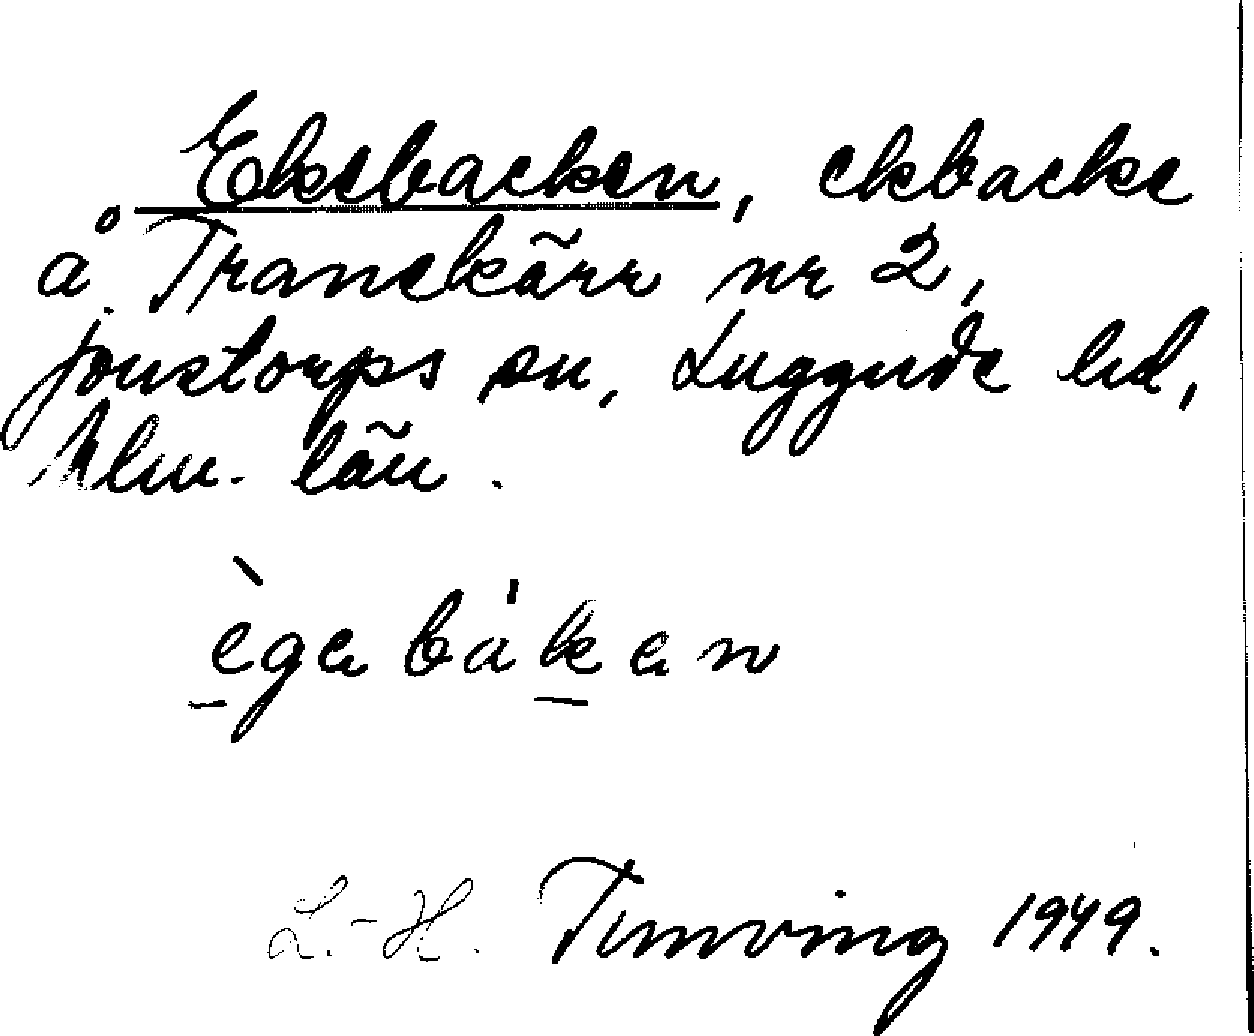 Ekebacken, ekbacke
å Tranekärr nr 2,
Jonstorps sn, Luggude hd,
Mlm. län.
ègebákən
L.-H. Tunving 1949.